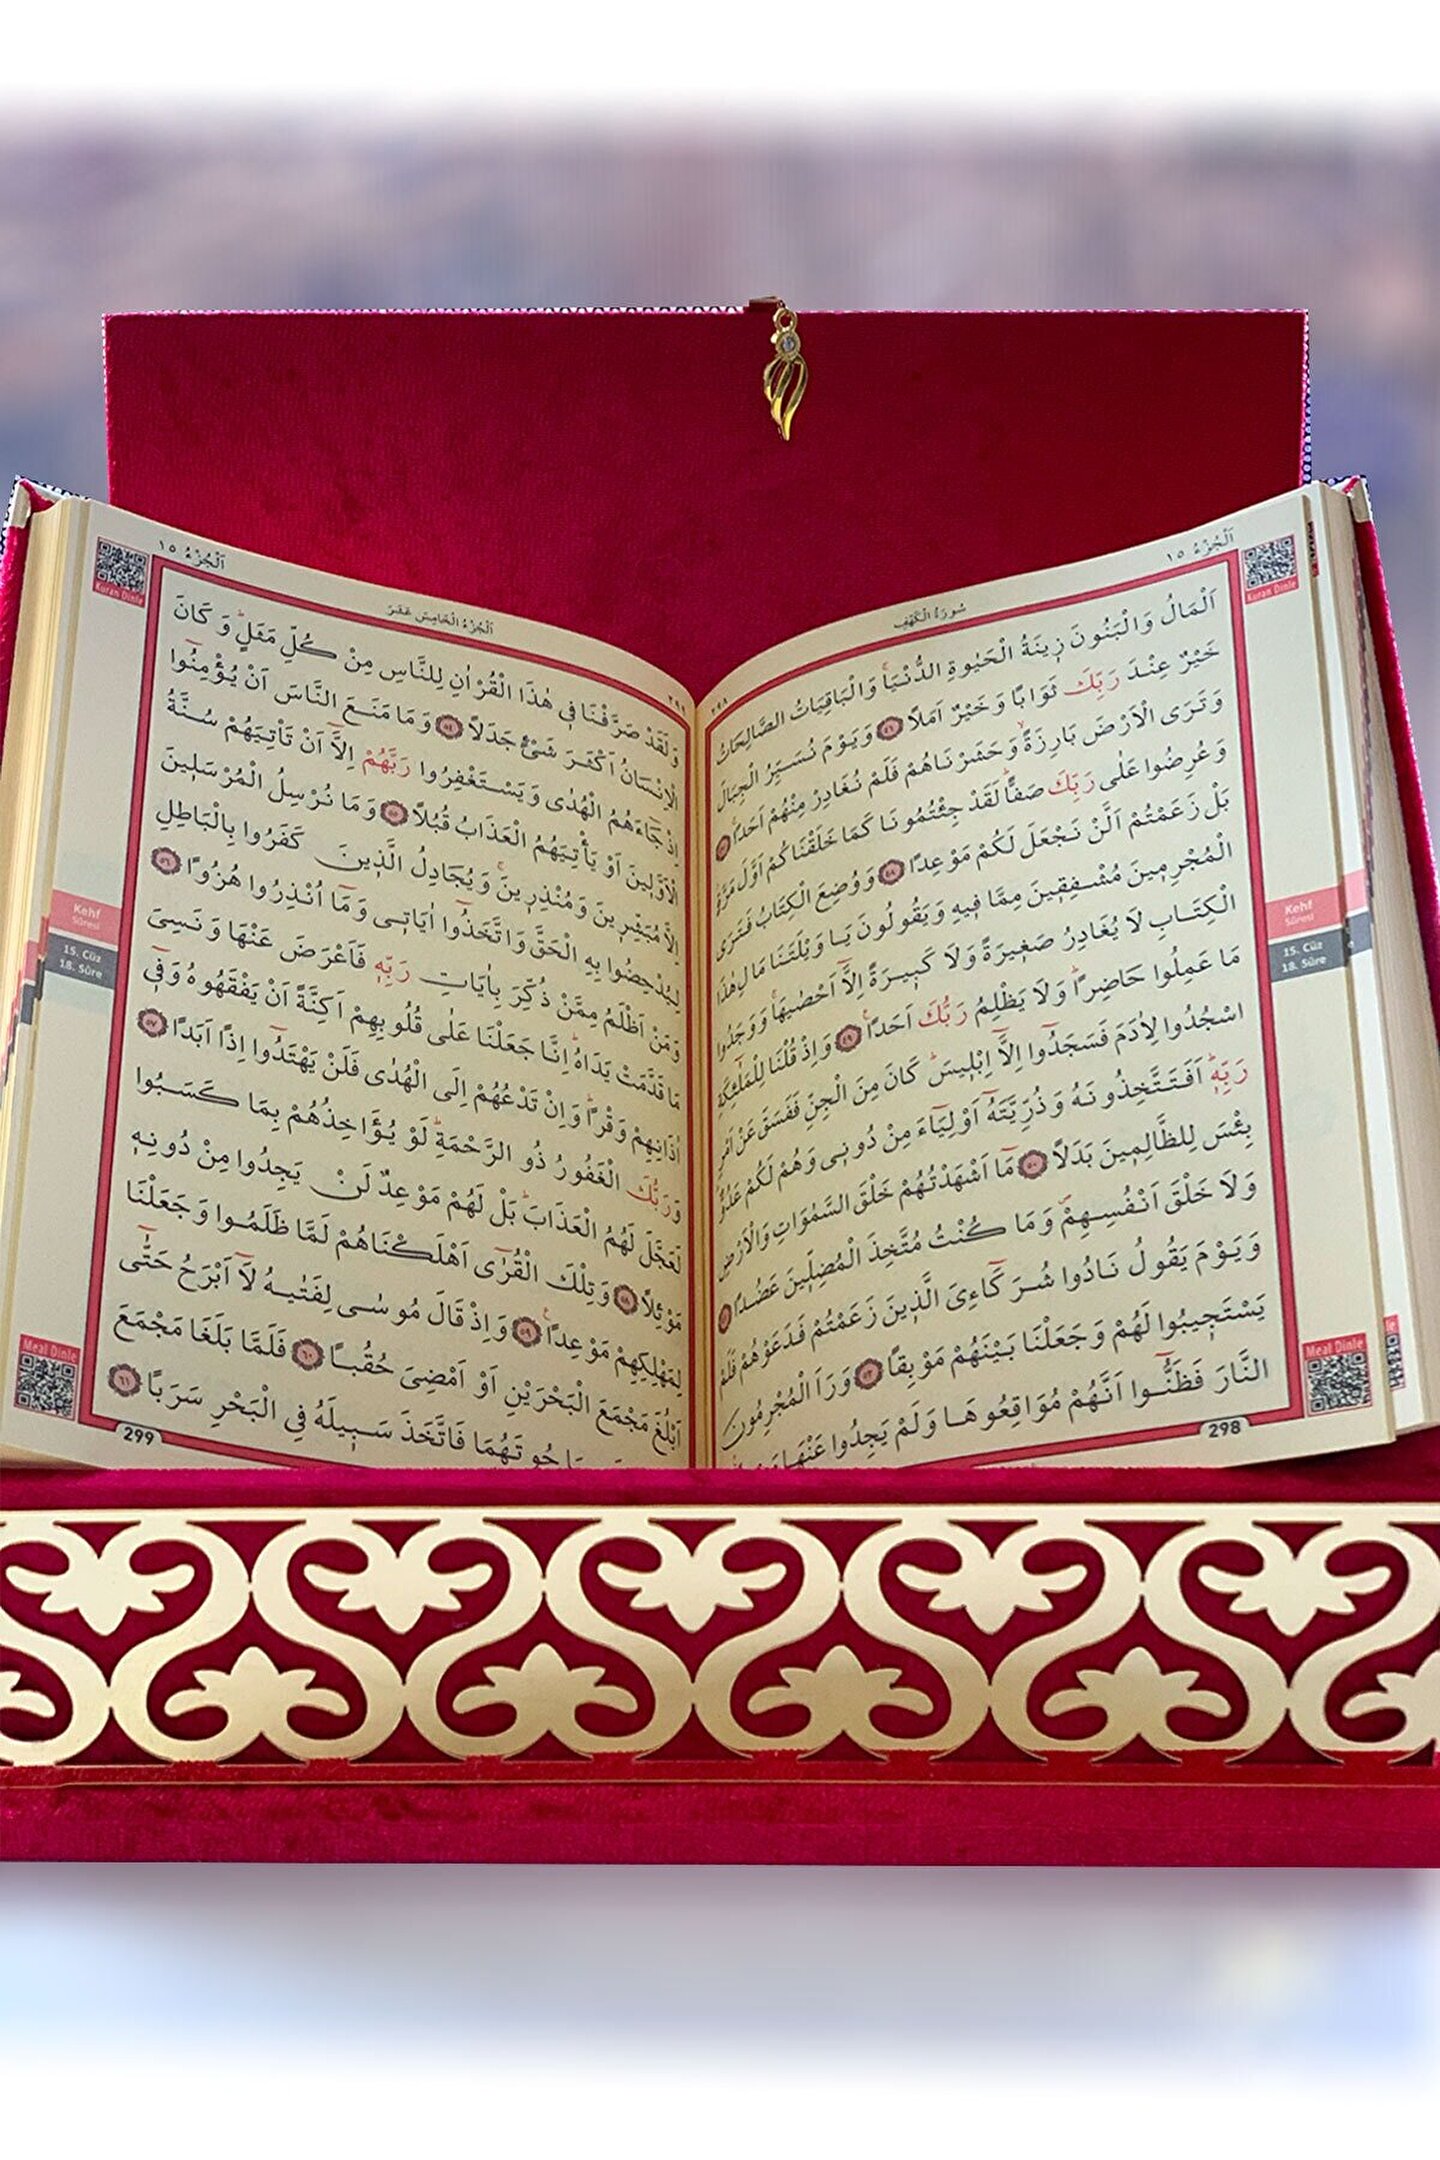 اَلْجُزْءُ ١٥
سُورَةُ الْكَهْفِ
٢٩٨
Kuran Dinle
اَلْمَالُ وَالْبَنُونَ زِينَةُ الْحَيٰوةِ الدُّنْيَاۚ وَالْبَاقِيَاتُ الصَّالِحَاتُ
خَيْرٌ عِنْدَ رَبِّكَ ثَوَابًا وَخَيْرٌ اَمَلًا ٤٦ وَيَوْمَ نُسَيِّرُ الْجِبَالَ
وَتَرَى الْاَرْضَ بَارِزَةًۙ وَحَشَرْنَاهُمْ فَلَمْ نُغَادِرْ مِنْهُمْ اَحَدًاۚ ٤٧
وَعُرِضُوا عَلٰى رَبِّكَ صَفًّاۜ لَقَدْ جِئْتُمُونَا كَمَا خَلَقْنَاكُمْ اَوَّلَ مَرَّةٍ
بَلْ زَعَمْتُمْ اَلَّنْ نَجْعَلَ لَكُمْ مَوْعِدًا ٤٨ وَوُضِعَ الْكِتَابُ فَتَرَى
الْمُجْرِمِينَ مُشْفِقِينَ مِمَّا فِيهِ وَيَقُولُونَ يَا وَيْلَتَنَا مَالِ هٰذَا
الْكِتَابِ لَا يُغَادِرُ صَغِيرَةً وَلَا كَبِيرَةً اِلَّٓا اَحْصٰيهَاۚ وَوَجَدُوا
مَا عَمِلُوا حَاضِرًاۜ وَلَا يَظْلِمُ رَبُّكَ اَحَدًا۟ ٤٩ وَاِذْ قُلْنَا لِلْمَلٰٓئِكَةِ
اسْجُدُوا لِاٰدَمَ فَسَجَدُٓوا اِلَّٓا اِبْلِيسَۜ كَانَ مِنَ الْجِنِّ فَفَسَقَ عَنْ اَمْرِ
رَبِّهِۜ اَفَتَتَّخِذُونَهُ وَذُرِّيَّتَهُٓ اَوْلِيَٓاءَ مِنْ دُونِي وَهُمْ لَكُمْ عَدُوٌّ
بِئْسَ لِلظَّالِمِينَ بَدَلًا ٥٠ مَٓا اَشْهَدْتُهُمْ خَلْقَ السَّمٰوَاتِ وَالْاَرْضِ
وَلَا خَلْقَ اَنْفُسِهِمْۖ وَمَا كُنْتُ مُتَّخِذَ الْمُضِلِّينَ عَضُدًا ٥١
وَيَوْمَ يَقُولُ نَادُوا شُرَكَٓاءِيَ الَّذِينَ زَعَمْتُمْ فَدَعَوْهُمْ فَلَمْ
يَسْتَجِيبُوا لَهُمْ وَجَعَلْنَا بَيْنَهُمْ مَوْبِقًا ٥٢ وَرَاَ الْمُجْرِمُونَ
النَّارَ فَظَنُّٓوا اَنَّهُمْ مُوَاقِعُوهَا وَلَمْ يَجِدُوا عَنْهَا
Kehf
Sûresi
15. Cüz
18. Sûre
Meal Dinle
298
اَلْجُزْءُ ١٥
اَلْجُزْءُ الْخَامِسَ عَشَرَ
٢٩٩
Kuran Dinle
وَلَقَدْ صَرَّفْنَا فِي هٰذَا الْقُرْاٰنِ لِلنَّاسِ مِنْ كُلِّ مَثَلٍۜ وَكَانَ
الْاِنْسَانُ اَكْثَرَ شَيْءٍ جَدَلًا ٥٤ وَمَا مَنَعَ النَّاسَ اَنْ يُؤْمِنُٓوا
اِذْ جَٓاءَهُمُ الْهُدٰى وَيَسْتَغْفِرُوا رَبَّهُمْ اِلَّٓا اَنْ تَأْتِيَهُمْ سُنَّةُ
الْاَوَّلِينَ اَوْ يَأْتِيَهُمُ الْعَذَابُ قُبُلًا ٥٥ وَمَا نُرْسِلُ الْمُرْسَلِينَ
اِلَّا مُبَشِّرِينَ وَمُنْذِرِينَۚ وَيُجَادِلُ الَّذِينَ كَفَرُوا بِالْبَاطِلِ
لِيُدْحِضُوا بِهِ الْحَقَّ وَاتَّخَذُٓوا اٰيَاتِي وَمَٓا اُنْذِرُوا هُزُوًا ٥٦
وَمَنْ اَظْلَمُ مِمَّنْ ذُكِّرَ بِاٰيَاتِ رَبِّهِ فَاَعْرَضَ عَنْهَا وَنَسِيَ
مَا قَدَّمَتْ يَدَاهُۜ اِنَّا جَعَلْنَا عَلٰى قُلُوبِهِمْ اَكِنَّةً اَنْ يَفْقَهُوهُ وَفِٓي
اٰذَانِهِمْ وَقْرًاۜ وَاِنْ تَدْعُهُمْ اِلَى الْهُدٰى فَلَنْ يَهْتَدُٓوا اِذًا اَبَدًا ٥٧
وَرَبُّكَ الْغَفُورُ ذُو الرَّحْمَةِۜ لَوْ يُؤَاخِذُهُمْ بِمَا كَسَبُوا
لَعَجَّلَ لَهُمُ الْعَذَابَۜ بَلْ لَهُمْ مَوْعِدٌ لَنْ يَجِدُوا مِنْ دُونِهِ
مَوْئِلًا ٥٨ وَتِلْكَ الْقُرٰٓى اَهْلَكْنَاهُمْ لَمَّا ظَلَمُوا وَجَعَلْنَا
لِمَهْلِكِهِمْ مَوْعِدًا۟ ٥٩ وَاِذْ قَالَ مُوسٰى لِفَتٰيهُ لَٓا اَبْرَحُ حَتّٰٓى
اَبْلُغَ مَجْمَعَ الْبَحْرَيْنِ اَوْ اَمْضِيَ حُقُبًا ٦٠ فَلَمَّا بَلَغَا مَجْمَعَ
حُوتَهُمَا فَاتَّخَذَ سَبِيلَهُ فِي الْبَحْرِ سَرَبًا ٦١
Kehf
Sûresi
15. Cüz
18. Sûre
Meal Dinle
299